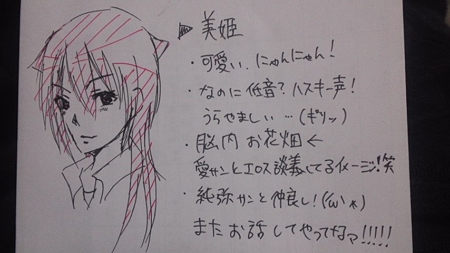 ▷美姫
・可愛い、にゃんにゃん!
・なのに低音?ハスキー声!
うらやましい…(ギリッ)
・脳内お花畑←
愛サンとエロス談義してるイメージ!笑
・純弥サンと仲良し!(
またお話してやってなァ!!!!!